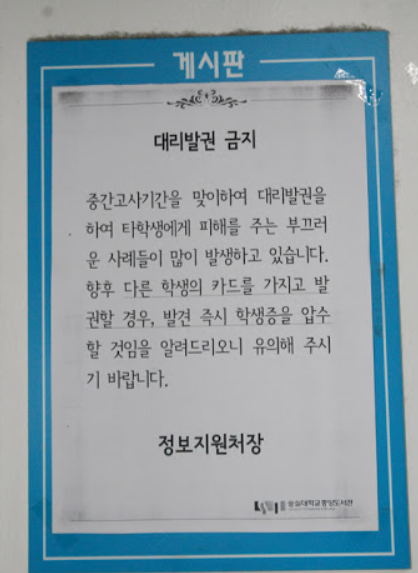 게시판
대리발권 금지
중간고사기간을 맞이하여 대리발권을
하여 타학생에게 피해를 주는 부끄러
운 사례들이 많이 발생하고 있습니다.
향후 다른 학생의 카드를 가지고 발
권할 경우, 발견 즉시 학생증을 압수
할 것임을 알려드리오니 유의해 주시
기 바랍니다.
정보지원처장
숭실대학교중앙도서관